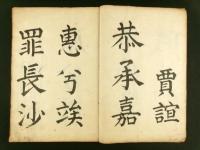 賈誼
恭承嘉
惠兮竢
罪長沙